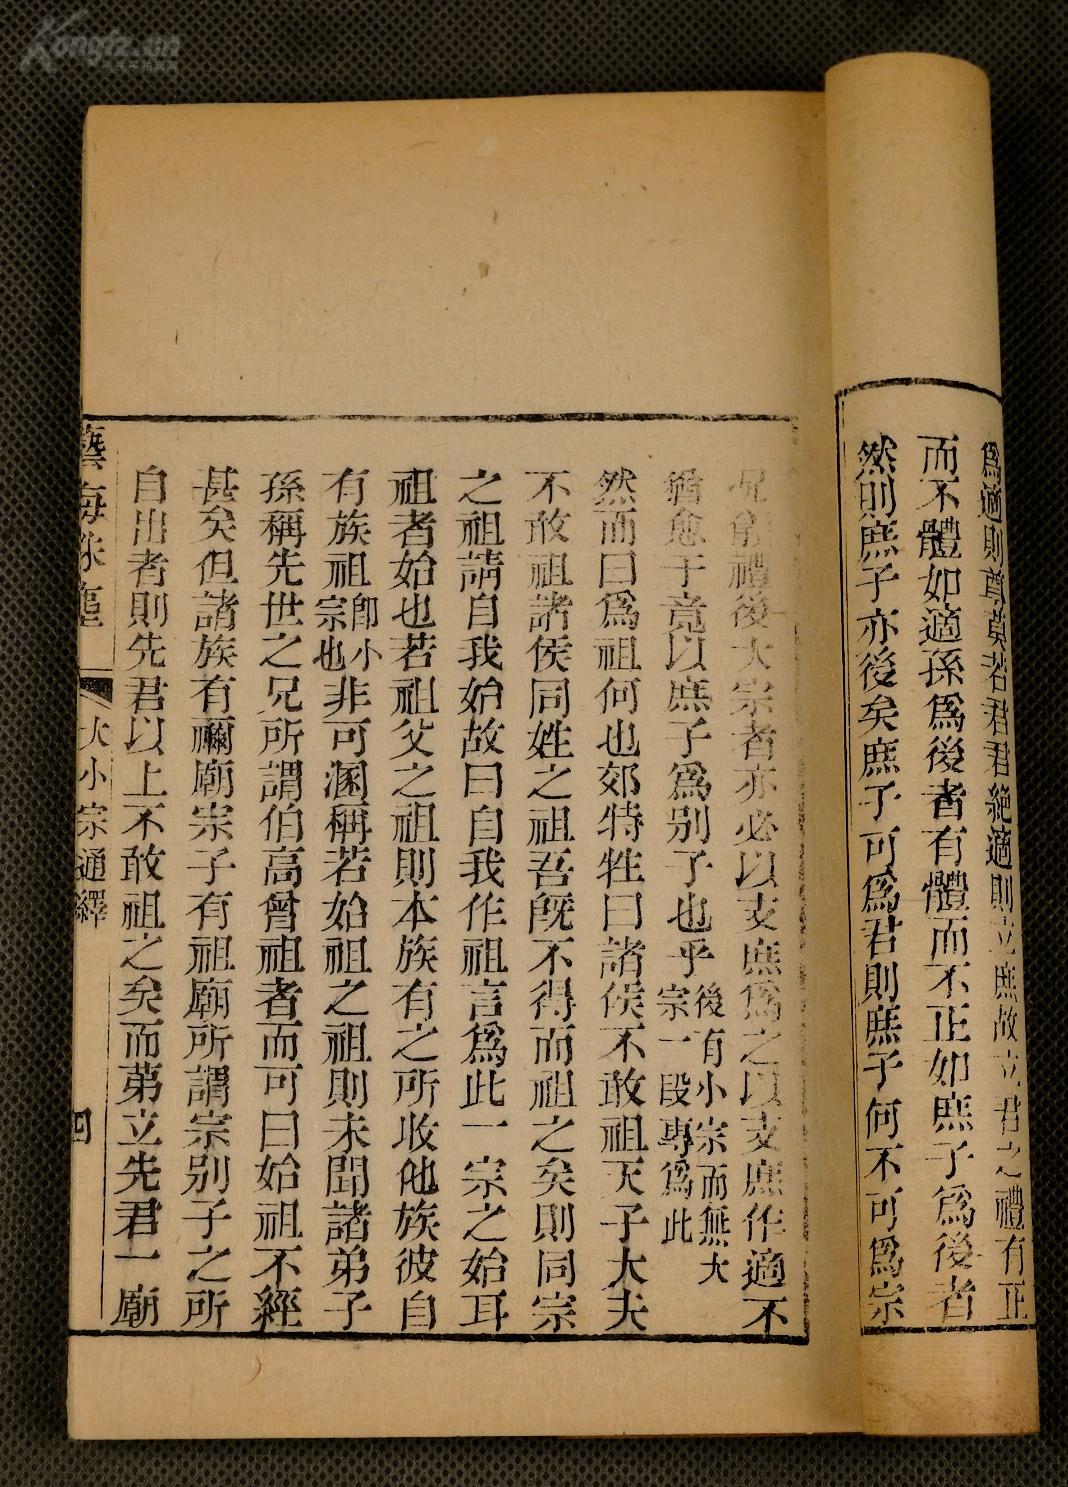 Kongfz.cn
為適則尊莫若君君絶適則立庶故立君之禮有正
而不體如適孫為後者有體而不正如庶子為後者
然則庶子亦後矣庶子可為君則庶子何不可為宗
況能禮後大宗者亦必以支庶為之以支庶作適不
猶愈于竟以庶子為別子也乎後有小宗而無大宗一段專為此
然而曰為祖何也郊特牲曰諸侯不敢祖天子大夫
不敢祖諸侯同姓之祖吾既不得而祖之矣則同宗
之祖請自我始故曰自我作祖言為此一宗之始耳
祖者始也若祖父之祖則本族有之所收他族彼自
有族祖即小宗也非可溷稱若始祖之祖則未聞諸弟子
孫稱先世之兄所謂伯高曾祖者而可曰始祖不經
甚矣但諸族有禰廟宗子有祖廟所謂宗別子之所
自出者則先君以上不敢祖之矣而第立先君一廟
藝海珠塵 大小宗通繹 四